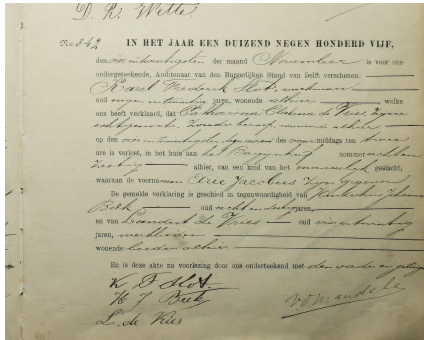 D. K. Wette
No. 842 IN HET JAAR EEN DUIZEND NEGEN HONDERD VIJF,
den vier en twintigsten der maand November is voor ons
ondergeteekende, Ambtenaar van den Burgerlijken Stand van Delft verschenen:
Karel Frederik Slot, werkman
oud negen en twintig jaren, wonende alhier welke
ons heeft verklaard, dat Catharina de Vries zijne
echtgenoote, zonder beroep, wonende alhier
op den vier en twintigsten dezer des voor middags ten twee
ure is verlost, in het huis aan het nommer
zestig alhier, van een kind van het mannelijk geslacht,
waaraan de voornamen Arie Jacobus zijn gegeven
De gemelde verklaring is geschied in tegenwoordigheid van Johannes
oud jaren,
en van Leendert de Vries oud vier en twintig
jaren, werklieden
wonende beiden alhier
En is deze akte na voorlezing door ons onderteekend met den vader en getuigen
K F Slot.
H J
L. de Vries
v.d. Mandele